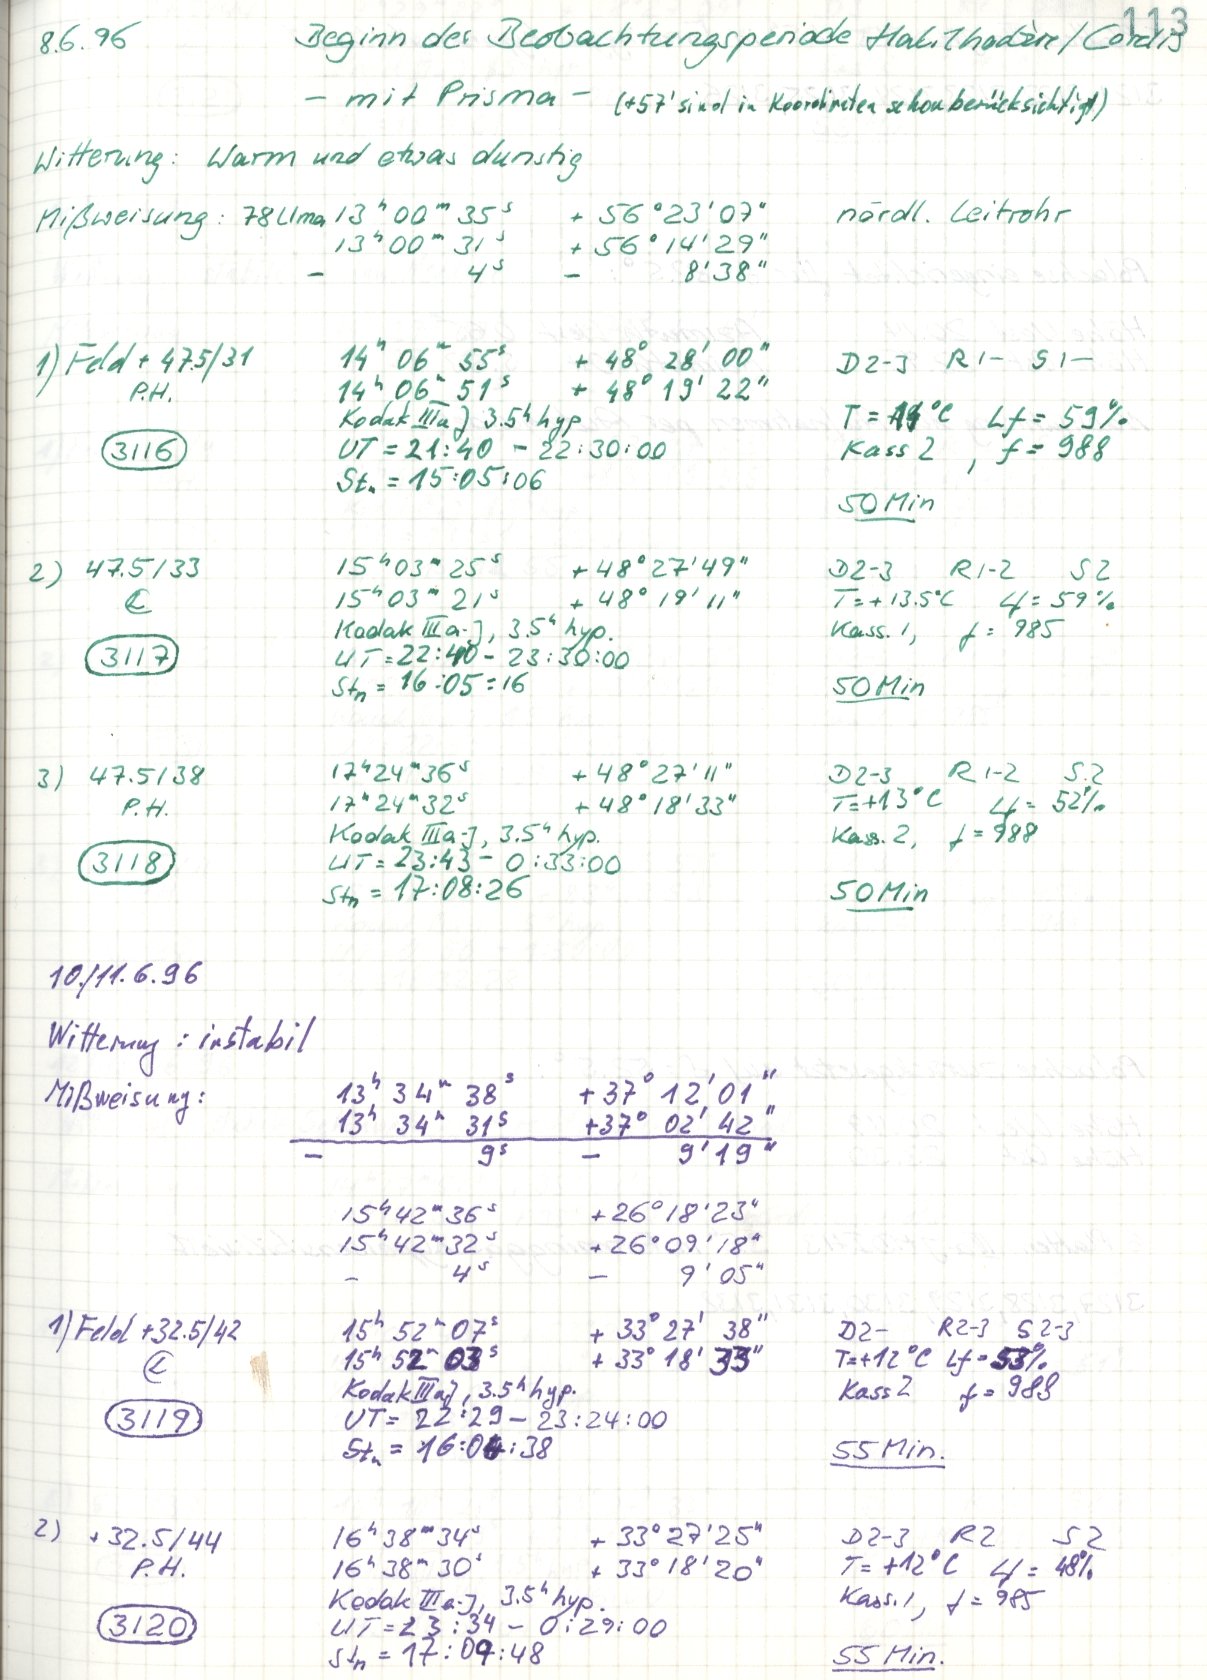 113
8.6.96 Beginn der Beobachtungsperiode /Cordis
- mit Prisma - (+57' sind in Koordinaten schon berücksichtigt)
Witterung: Warm und etwas dunstig
Mißweisung: 78 Uma 13ʰ00ᵐ35ˢ + 56°23'07" nördl. Leitrohr
13ʰ00ᵐ31ˢ + 56°14'29"
- 4ˢ - 8'38"
1) Feld + 47.5/31 14ʰ 06ᵐ 55ˢ + 48° 28' 00" D2-3 R1- S1-
P.H. 14ʰ 06ᵐ 51ˢ + 48° 19' 22"
Kodak IIIaJ 3.5ʰ hyp T = 14°C Lf = 59%
3116 UT = 21:40 - 22:30:00 Kass 2, f = 988
Stₙ = 15:05:06
50 Min
2) 47.5/33 15ʰ03ᵐ25ˢ + 48°27'49" D2-3 R1-2 S2
15ʰ03ᵐ21ˢ + 48°19'11" T=+13.5°C Lf = 59%
Kodak IIIa-J, 3.5ʰ hyp. Kass. 1, f = 985
3117 UT = 22:40 - 23:30:00
Stₙ = 16:05:16 50 Min
3) 47.5/38 17ʰ24ᵐ36ˢ + 48°27'11" D2-3 R1-2 S2
P.H. 17ʰ24ᵐ32ˢ + 48°18'33" T=+13°C Lf = 52%
Kodak IIIa-J, 3.5ʰ hyp. Kass. 2, f = 988
3118 UT = 23:43 - 0:33:00
Stₙ = 17:08:26 50 Min
10./11.6.96
Witterung: instabil
Mißweisung: 13ʰ 34ᵐ 38ˢ + 37° 12' 01"
13ʰ 34ᵐ 31ˢ +37° 02' 42"
- 9ˢ - 9'19"
15ʰ42ᵐ36ˢ +26°18'23"
15ʰ42ᵐ32ˢ +26°09'18"
- 4ˢ - 9'05"
1) Feld +32.5/42 15ʰ 52ᵐ 07ˢ + 33° 27' 38" D2- R2-3 S2-3
15ʰ 52ᵐ 03ˢ + 33° 18' 33" T=+12°C Lf = 53%
Kodak IIIaJ, 3.5ʰ hyp. Kass 2 f = 988
3119 UT = 22:29 - 23:24:00
Stₙ = 16:04:38 55 Min.
2) + 32.5/44 16ʰ38ᵐ34ˢ + 33°27'25" D2-3 R2 S2
P.H. 16ʰ38ᵐ30ˢ + 33°18'20" T = +12°C Lf = 48%
Kodak IIIa-J, 3.5ʰ hyp. Kass. 1, f = 985
3120 UT = 23:34 - 0:29:00
Stₙ = 17:09:48 55 Min.